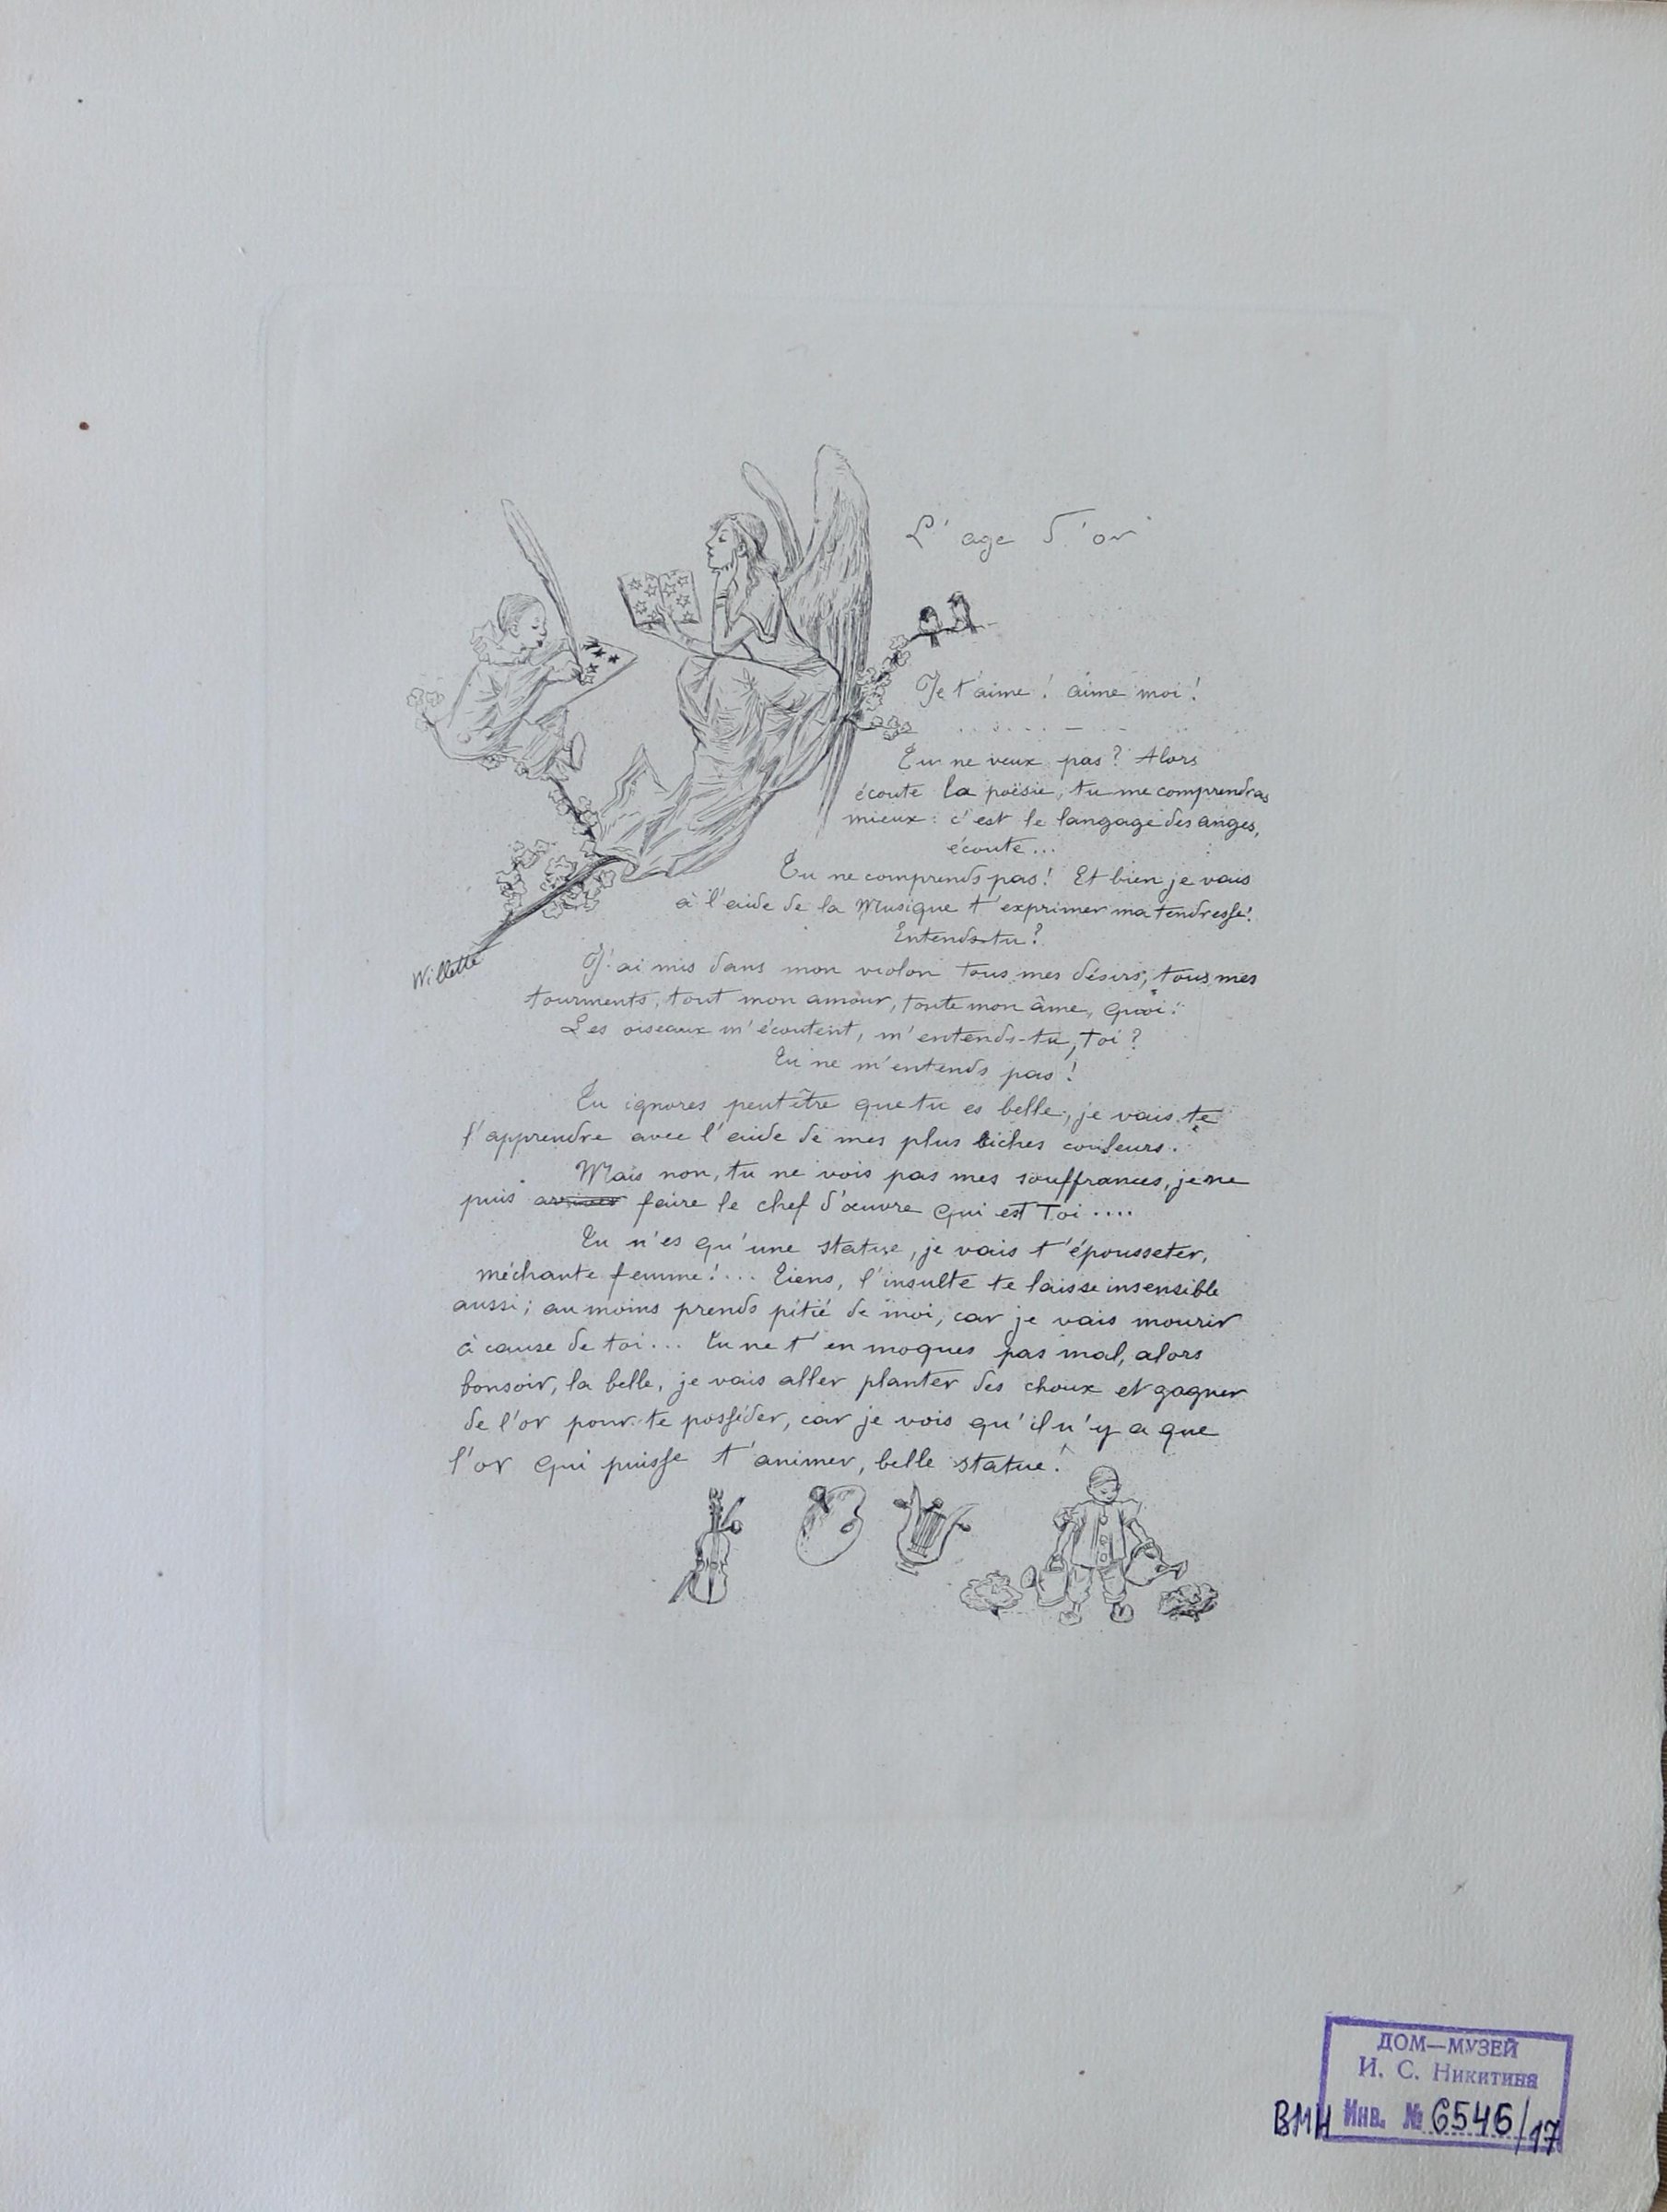 L'age d'or
Je t'aime! aime moi!
Tu ne veux pas? Alors
écoute la poësie, tu me comprendras
mieux: c'est le langage des anges,
écoute...
Tu ne comprends pas! Et bien je vais
à l'aide de la Musique t'exprimer ma tendresse!
Entends-tu?
J'ai mis dans mon violon tous mes désirs, tous mes
tourments, tout mon amour, toute mon âme, quoi!
Les oiseaux m'écoutent, m'entends-tu, toi?
Tu ne m'entends pas!
Willette
Tu ignores peutêtre que tu es belle, je vais te
l'apprendre avec l'aide de mes plus riches couleurs.
Mais non, tu ne vois pas mes souffrances, je ne
puis faire le chef d'œuvre qui est Toi....
Tu n'es qu'une statue, je vais t'épousseter,
méchante femme!... Tiens, l'insulte te laisse insensible
aussi; au moins prends pitié de moi, car je vais mourir
à cause de toi... Tu ne t'en moques pas mal, alors
bonsoir, la belle, je vais aller planter des choux et gagner
de l'or pour te posséder, car je vois qu'il n'y a que
l'or qui puisse t'animer, belle statue!
ДОМ—МУЗЕЙ
И. С. Никитина
ВМН Инв. № 6546/17